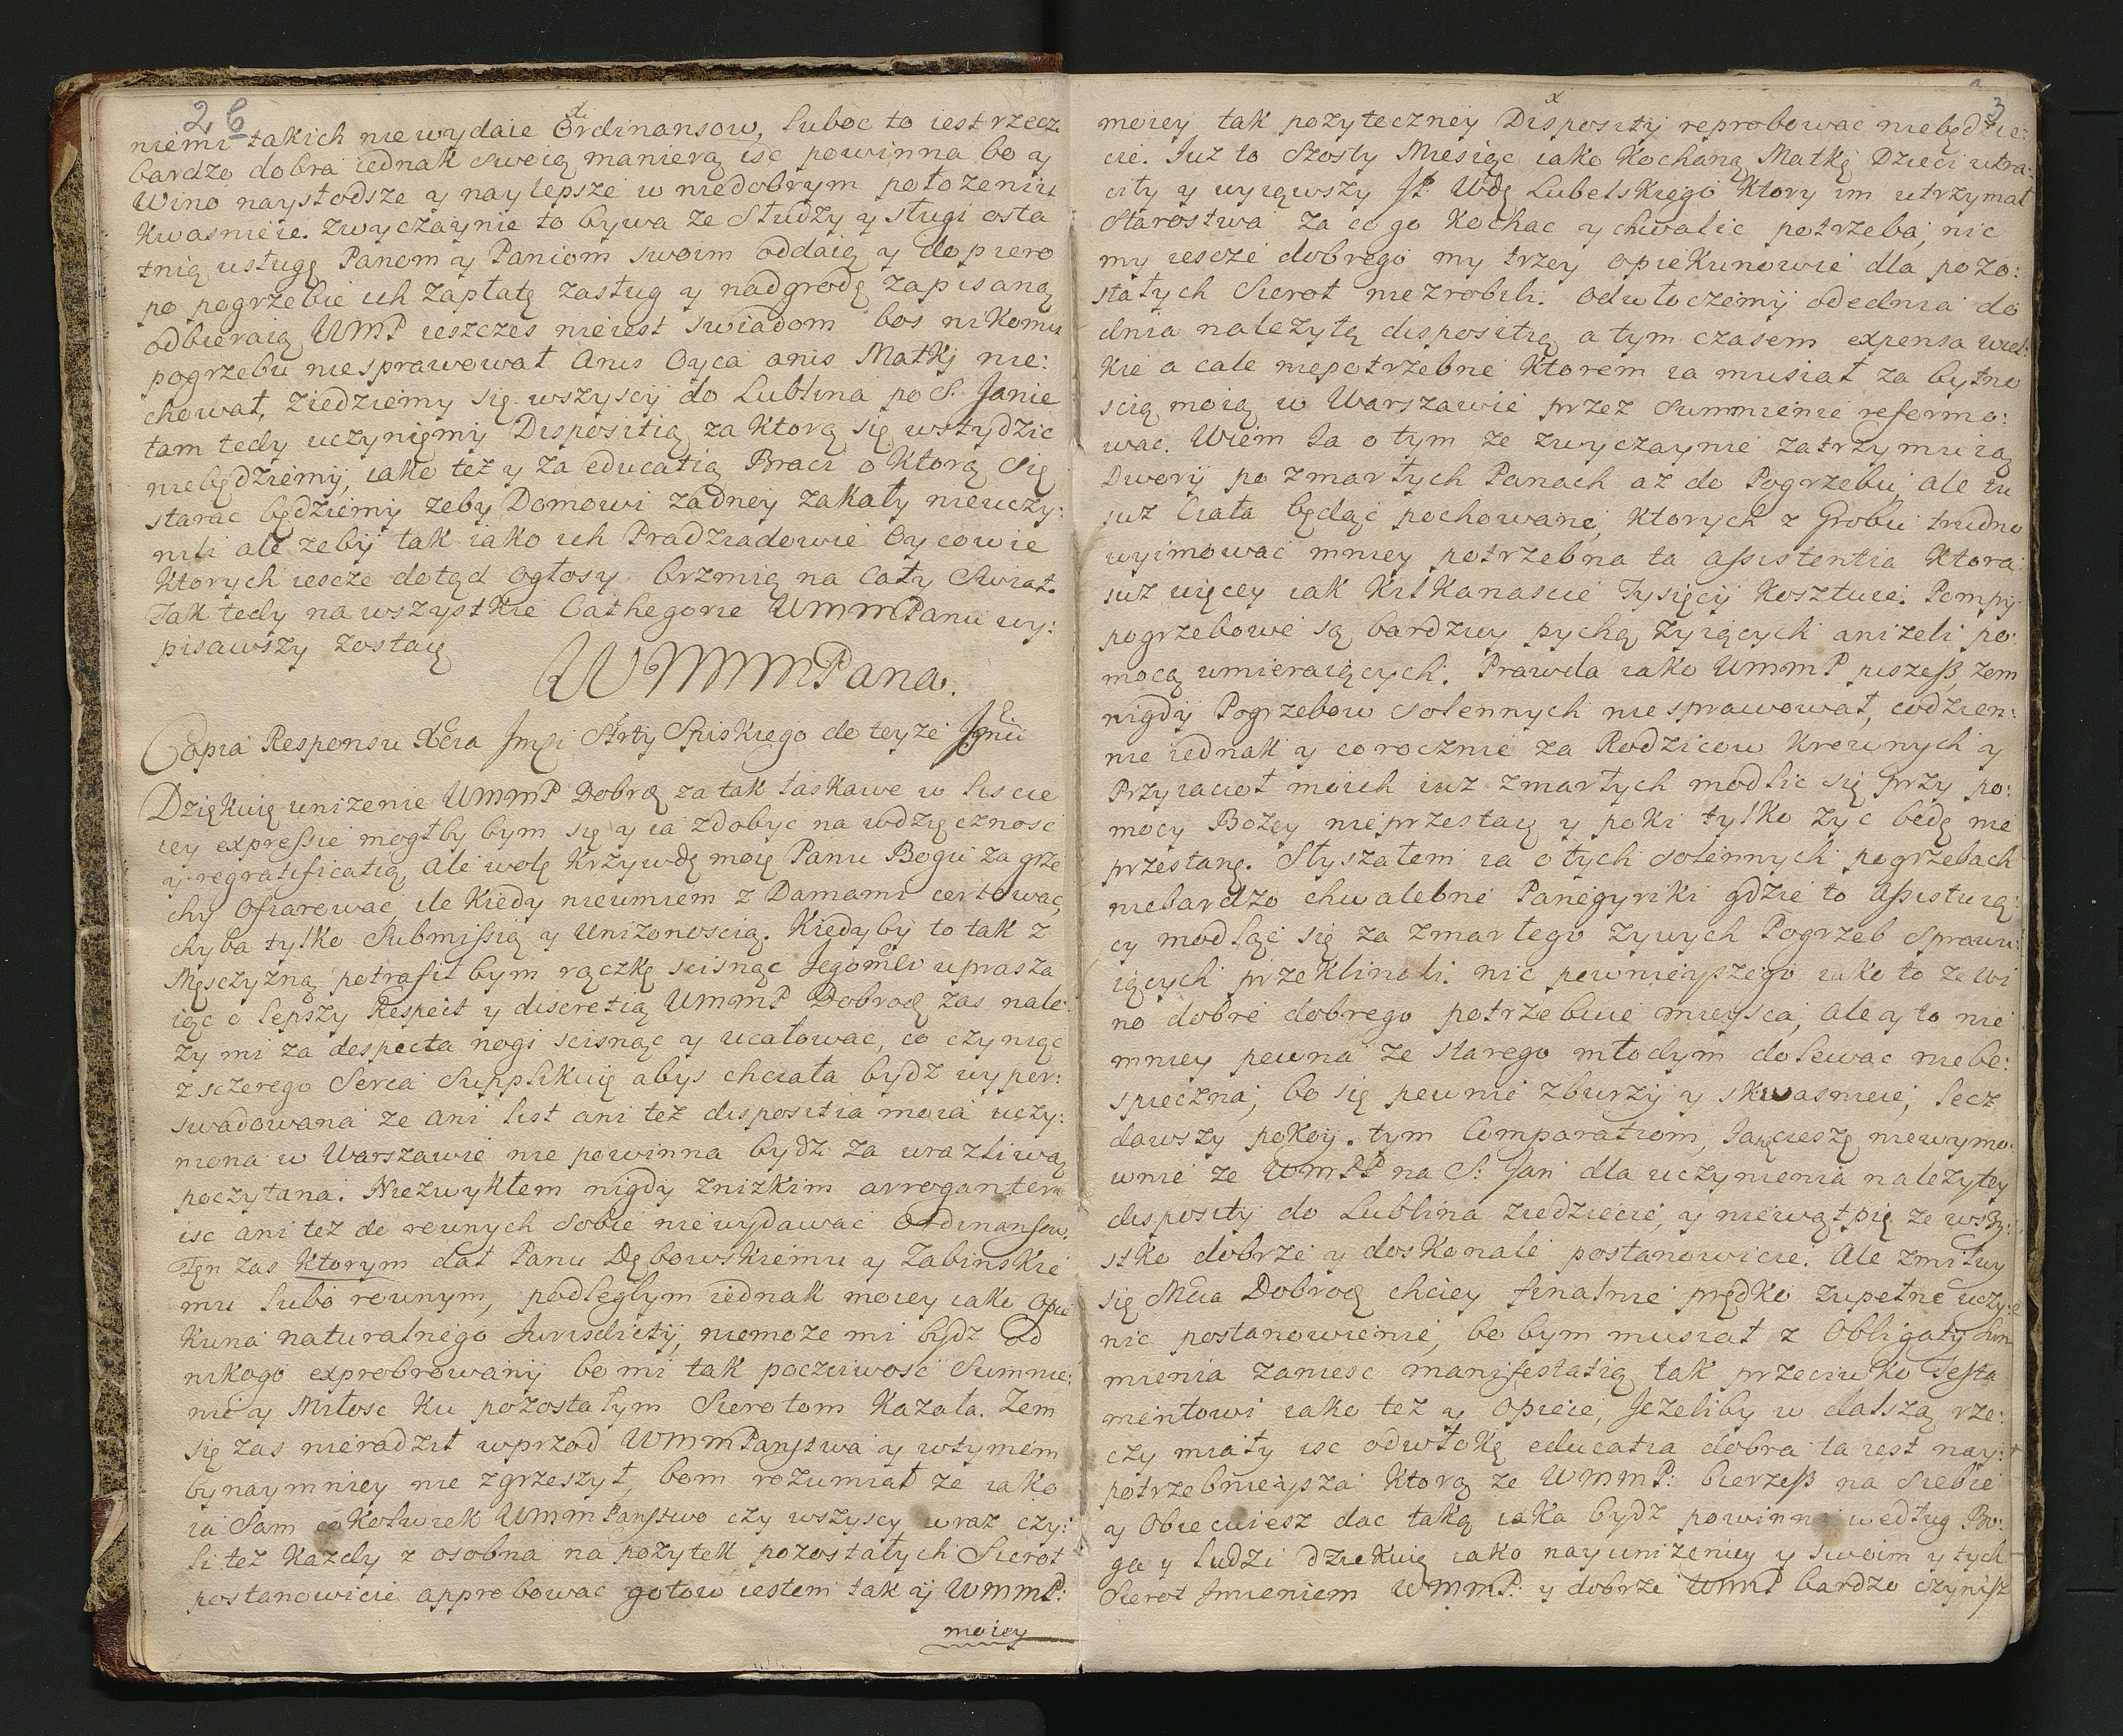 26
niemi takich niewydaie Ordinansow, luboc to iest rzecz
bardzo dobra iednak swoią manierą isc powinna bo y
Wino naysłodsze y naylepsze w niedobrym położeniu
kwasnieie. Zwyczaynie to bywa ze Słudzy y sługi osta
tnią usługę Panom y Paniom swoim oddaią y dopiero
po pogrzebie ich zapłatę zasług y nadgrodę zapisaną
odbieraią UMP ieszczes nieiest swiadom bos nikomu
pogrzebu niesprawował Anis Oyca anis Matkj nie:
chował, Ziedziemy się wszyscy do Lublina po S. Janie
tam tedy uczynięmy Dispositią za ktorą się wstydzic
niebędziemy, iako też y za educatią Braci o ktorą się
starac będziemy zeby Domowi zadney zakały nieuczy:
nili ale zeby tak iako ich Pradziadowie Oycowie
ktorych iescze dotąd Ogłosy brzmią na Cały Swiat.
Tak tedy na wszystkie Cathegorie UMMPanu wy:
pisawszy zostaię
WMMMPana.
Copia Responsu Xcia Jmsci Strty Spiskiego do teyze Jgnii
Dziękuię uniżenie UMMP Dobrą za tak łaskawe w liscie
iey expressie mogłby bym się y ia zdobyc na wdzięcznosc
y regratificatią, Ale wolę krzywdę moię Panu Bogu za grze
chy Ofiarowac ile kiedy nieumiem z Damami certowac,
chyba tylko Submissią y Unizonoscią. Kiedyby to tak z
Męsczyzną potrafił bym rączkę scisnąc Jegomci uprasza
iąc o lepszy Respect y discretią UMMP Dobrod zas nale:
zy mi za despecta nogi scisnąc y ucałowac, co czyniąc
z sczerego Serca Supplikuię abys chciała bydz wyper:
swadowana ze ani list ani też dispositia moia uczy:
niona w Warszawie nie powinna bydz za urazliwą
poczytana. Niezwykłem nigdy znizkim arroganter
isc ani tez do rownych sobie niewydawac Ordinansow.
Ten zas ktorym dał Panu Dębowskiemu y Zabinskie
mu lubo rownym, podległym iednak moiey iako Opie
kuna naturalnego Jurisdicty, niemoże mi bydz od
nikogo exprobrowany bo mi tak poczciwosc Summie:
nie y Miłosc ku pozostałym Sierotom kazała. Zem
się zas nieradził wprzod WMMPanstwa y wtymem
bynaymniey nie zgrzeszył, bom rozumiał ze iako
ia Sam cokolwiek UMMPanstwo czy wszyscy wraz czy:
li też kazdy z osobna na pozytek pozostałych Sierot
postanowicie approbowac gotow iestem tak y WMMP:
moiey

3
moiey tak pozyteczney Disposity reprobowac niebędzie:
cie. Już to Szosty Miesiąc iako Kochaną Matkę Dzieci utra:
ciły y wyiąwszy JP Wdę Lubelskiego ktory im utrzymał
Starostwa za co go kochac y chwalic potrzeba, nic
my iescze dobrego my trzey opiekunowie dla pozo:
stałych Sierot niezrobili. Odwłoczemy ode dnia do
dnia nalezytą dispositią a tym czasem expensa wiel:
kie a całe niepotrzebne ktorem ia musiał za bytno
scią moią w Warszawie przez Summienie reformo:
wac. Wiem Ja o tym ze zwyczaynie zatrzymuią
Dwory po zmarłych Panach az do Pogrzebu, ale tu
iuż Ciała będąc pochowane, ktorych z Grobu trudno
wyimowac mniey potrzebna ta assistentia ktora
iuż więcey iak kilkanascie Tysięcy kosztuie. Pompy
pogrzebowe są bardziey pychą żyiących anizeli po:
mocą umieraiących. Prawda iako UMMP piszesz zem
nigdy Pogrzebow Solennych niesprawował, codzien:
nie iednak y corocznie za Rodzicow krewnych y
Przyiacioł moich iuz zmarłych modlic się przy po:
mocy Bozey nieprzestaię y poki tylko życ będę nie
przestanę. Słyszałem ia o tych solennych pogrzebach
niebardzo chwalebne Panegyriki gdzie to assistuią:
cy modląc się za zmarłego zywych Pogrzeb sprawu:
iących przeklinali. nic pewnieyszego iako to ze wi
no dobre dobrego potrzebuie mieysca, ale y to nie
mniey pewna ze starego młodym dolewac niebe:
spieczna, bo się pewnie zburzy y skwasnieie, lecz
dawszy pokoy tym Comparatiom, Ja się cieszę niewymo:
wnie ze WMPP na S: Jan dla uczynienia nalezytey
disposity do Lublina ziedziecie, y niewątpię ze wszy:
stko dobrze y doskonale postanowicie. Ale zmiłuy
się Mcia Dobrod chciey finalnie prędko zupełne uczy:
nic postanowienie, bo bym musiał z Obligaty Sum
mienia zaniesc manifestatią tak przeciwko Testa
mentowi iako też y Opiece, Jezeliby w dalszą rze:
czy miały isc odwłokę educatia dobra ta iest nay:
potrzebnieysza ktorą ze WMMP: bierzesz na siebie
y Obiecuiesz dac taką iaka bydz powinna według Bo:
ga y ludzi dziękuię iako nayunizeniey y swoim y tych
Sierot Jmieniem WMMP: y dobrze WMP bardzo czynisz